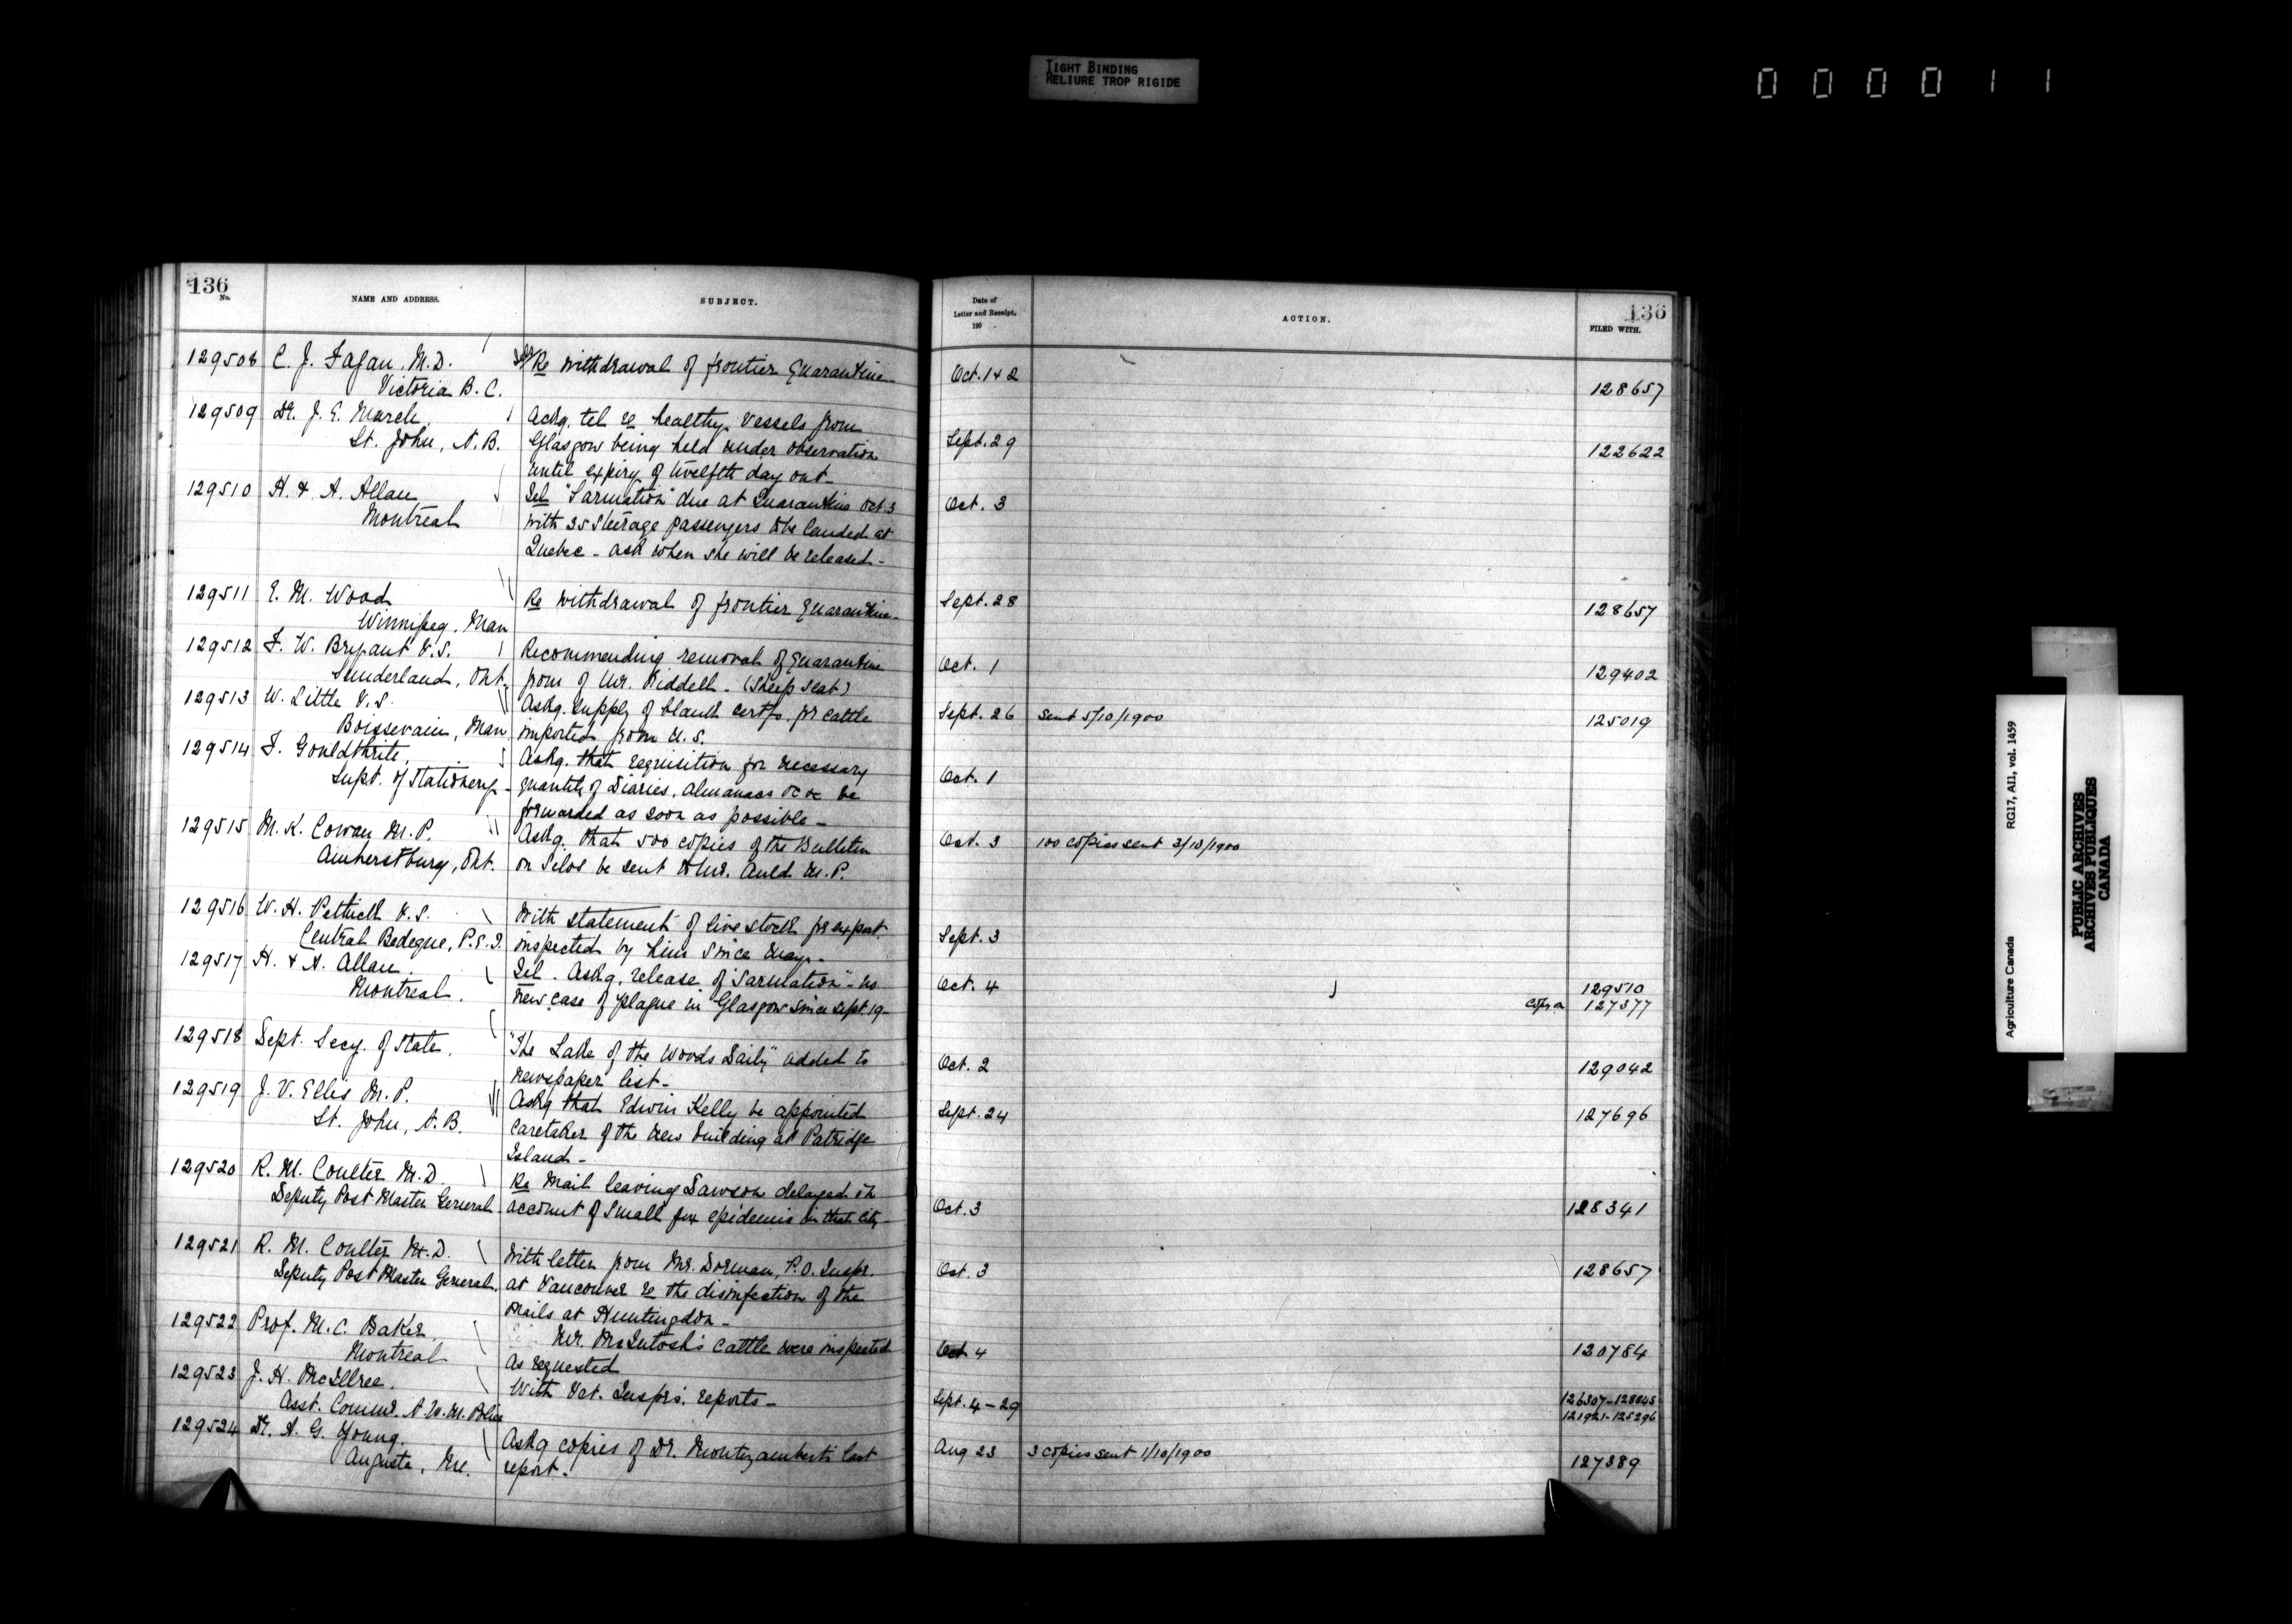 TIGHT BINDING
RELIURE TROP RIGIDE
000011
136
No.
NAME AND ADDRESS.
SUBJECT.
129508 C. J. Fagan, M.D. Re withdrawal of frontier Quarantine
Victoria B. C.
129509 Dr. J. E. March Askg. tel re healthy vessels from
St. John, N.B. Glasgow being held under observation
until expiry of twelfth day out
129510 H. & A. Allan Tel "Sarmation" due at Quarantine Oct. 3
Montreal with 35 Steerage passengers to be landed at
Quebec - ask when she will be released -
129511 E. M. Wood Re withdrawal of frontier Quarantine -
Winnipeg, Man
129512 F. W. Bryant V.S. Recommending removal of Quarantine
Sunderland, Ont. from of Mr. Riddell - (Sheep Scab)
129513 W. Little V.S. Askg. supply of blank certfs. for cattle
Boissevain, Man imported from U.S.
129514 F. Gouldthrite, Askg. that requisition for necessary
Supt. of Stationery - quantity of Diaries, Almanacs &c &c be
forwarded as soon as possible -
129515 M. K. Cowan M.P. Askg. that 500 copies of the Bulletin
Amherstburg, Ont. on Silos be sent to Mr. Auld M.P.
129516 W. H. Pethick V.S. With statement of live stock for export
Central Bedeque, P.E.I. inspected by him since May -
129517 H. & A. Allan. Tel. Askg. release of "Sarmation" - no
Montreal. new case of plague in Glasgow since Sept 19 -
129518 Dept. Secy. of State. "The Lake of the Woods Daily" added to
newspaper list -
129519 J. V. Ellis M.P. Askg that Edwin Kelly be appointed
St. John, N.B. caretaker of the new building at Patridge
Island -
129520 R. M. Coulter M.D. Re Mail leaving Dawson delayed on
Deputy Post Master General account of Small pox epidemic in that City -
129521 R. M. Coulter M.D. With letter from Mr. Dorman, P.O. Inspr.
Deputy Post Master General. at Vancouver re the disinfection of the
mails at Huntingdon -
129522 Prof. M. C. Baker, Mr. McIntosh's cattle were inspected
Montreal as requested
129523 J. H. McIllree. With Vet. Insprs'. reports -
Asst. Commr. N.W.M. Police
129524 Dr. A. G. Young. Askg copies of Dr. Montizambert's last
Augusta, Me. report.
Date of
Letter and Receipt,
190 .
ACTION.
136
FILED WITH.
Oct. 1 & 2 128657
Sept. 29 122622
Oct. 3
Sept. 28 128657
Oct. 1 129402
Sept. 26 Sent 5/10/1900 125019
Oct. 1
Oct. 3 100 copies sent 3/10/1900
Sept. 3
Oct. 4 129510
Copy on 127377
Oct. 2 129042
Sept. 24 127696
Oct. 3 128341
Oct. 3 128657
Oct 4 120784
Sept. 4 - 29 126307 - 128845
121921 - 125296
Aug 23 3 copies sent 1/10/1900 127389
Agriculture Canada RG17, AI1, vol. 1459
PUBLIC ARCHIVES
ARCHIVES PUBLIQUES
CANADA